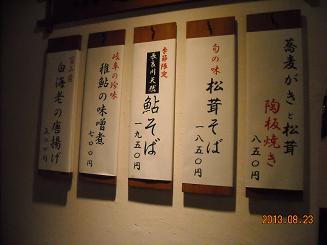 蕎麦がきと松茸
陶板焼き
八五〇円
旬の味
松茸そば
一八五〇円
季節限定
長良川天然
鮎そば
一九五〇円
岐阜の珍味
稚鮎の味噌煮
七〇〇円
富山産
白海老の唐揚げ
2013.08.23